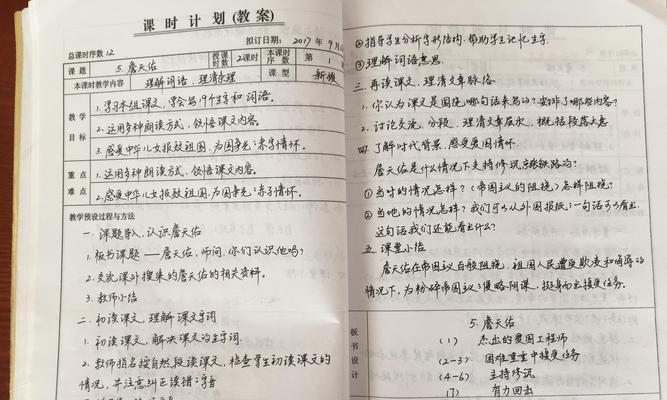 课时计划(教案)
拟订日期: 2017年9月
总课时序数12
课题 5.詹天佑 授课时数 2课时 本课时序数 第1
本课时教学内容 理解词语、理清条理 课型 新授
教学目标
1.学习本组课文,学会写19个生字和词语。
2.运用多种朗读方式,领悟课文内容。
3.感受中华儿女报效祖国、为国争光的赤子情怀。
重点难点
1.运用多种朗读方式,领悟课文内容。
2.感受中华儿女报效祖国、为国争光的赤子情怀。
教学预设过程与方法
一.课题导入,认识詹天佑
1.板书课题——詹天佑,师问:你们认识他吗?
2.交流课外搜集的詹天佑的相关资料。
3.教师小结
二.初读课文,理解课文字词
1.初读课文,解决课文的生字词.
2.教师指名按自然段读课文,检查学生初读课文的
情况,并注意纠正读错的字音
②指导学生分析字形结构,帮助学生记忆生字.
③理解词语意思.
三.再读课文,理清文章脉络
1.你认为课文是围绕哪句话来写的?安排了哪些内容?
2.讨论交流,分段,理清文章层次,概括段落大意
四.了解时代背景,感受爱国情怀.
詹天佑是什么情况下主持修筑京张铁路的?
①当时的情况怎样?(帝国主义的阻挠)怎样阻挠?
②当地的情况怎样?我们可以从外国报纸的一句话可以看出,
这句话我们还能看出什么?
五.课堂小结
詹天佑在帝国主义百般阻挠,祖国人民遭受欺凌和侮辱的
情况下,为粉碎帝国主义的侵略阴谋,挺身而出接受任务.
板书设计
5.詹天佑
(1) 杰出的爱国工程师
(2-3) 困难重重中接受任务
(4-6) 主持修筑
(7) 有力回击